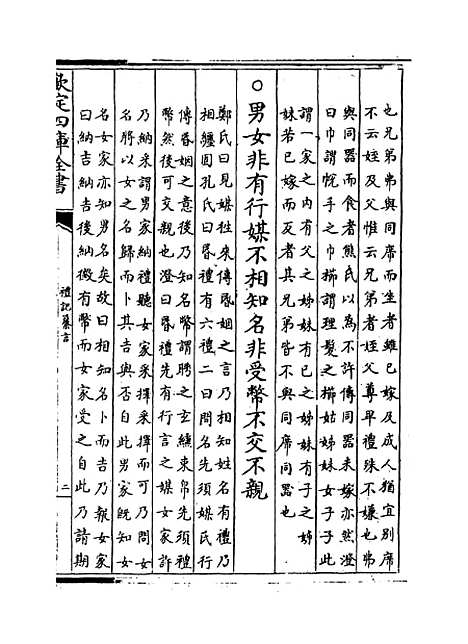 也兄弟弗與同席而坐者雖已嫁及成人猶宜别席
不云姪及父惟云兄弟者姪父尊卑禮殊不嫌也弗
與同器而食者熊氏以為不許傳同器未嫁亦然澄
曰巾謂帨手之巾櫛謂理髮之櫛姑姊妹女子子此
謂一家之内有父之姊妹有已之姊妹有子之姊
妹若已嫁而反者其兄弟皆不與同席同器也
○男女非有行媒不相知名非受幣不交不親
鄭氏曰見媒徃來傳昬姻之言乃相知姓名有禮乃
相纏固孔氏曰昬禮有六禮二曰問名先須媒氏行
傳昬姻之意後乃知名幣謂聘之玄纁束帛先須禮
幣然後可交親也澄曰昬禮先有行言之媒女家許
乃納采謂男家納禮聽女家采擇采擇而可乃問女
名將以女之名歸而卜其吉與否自此男家既知女
名女家亦知男名矣故曰相知名卜而吉乃報女家
曰納吉納吉後納徵有幣而女家受之自此乃請期
欽定四庫全書
禮記纂言
二